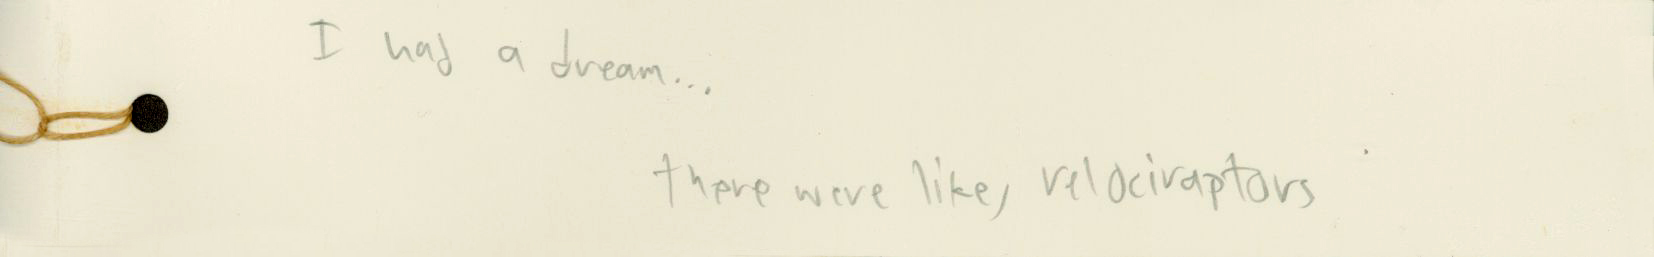 I had a dream...
there were like, velociraptors